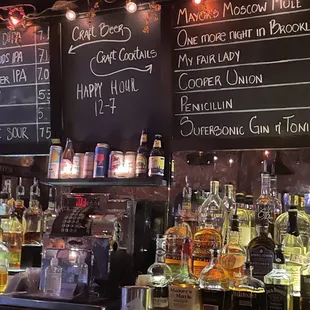 DIPA 7.
RDS 7.1
PA
ER IPA 7.
IPA
SOUR 7.5
Craft Beer
Craft Cocktails
Happy Hour
12-7
Mayor's Moscow Mule
One more night in Brookl
My fair lady
Cooper Union
Penicillin
Supersonic Gin & Toni